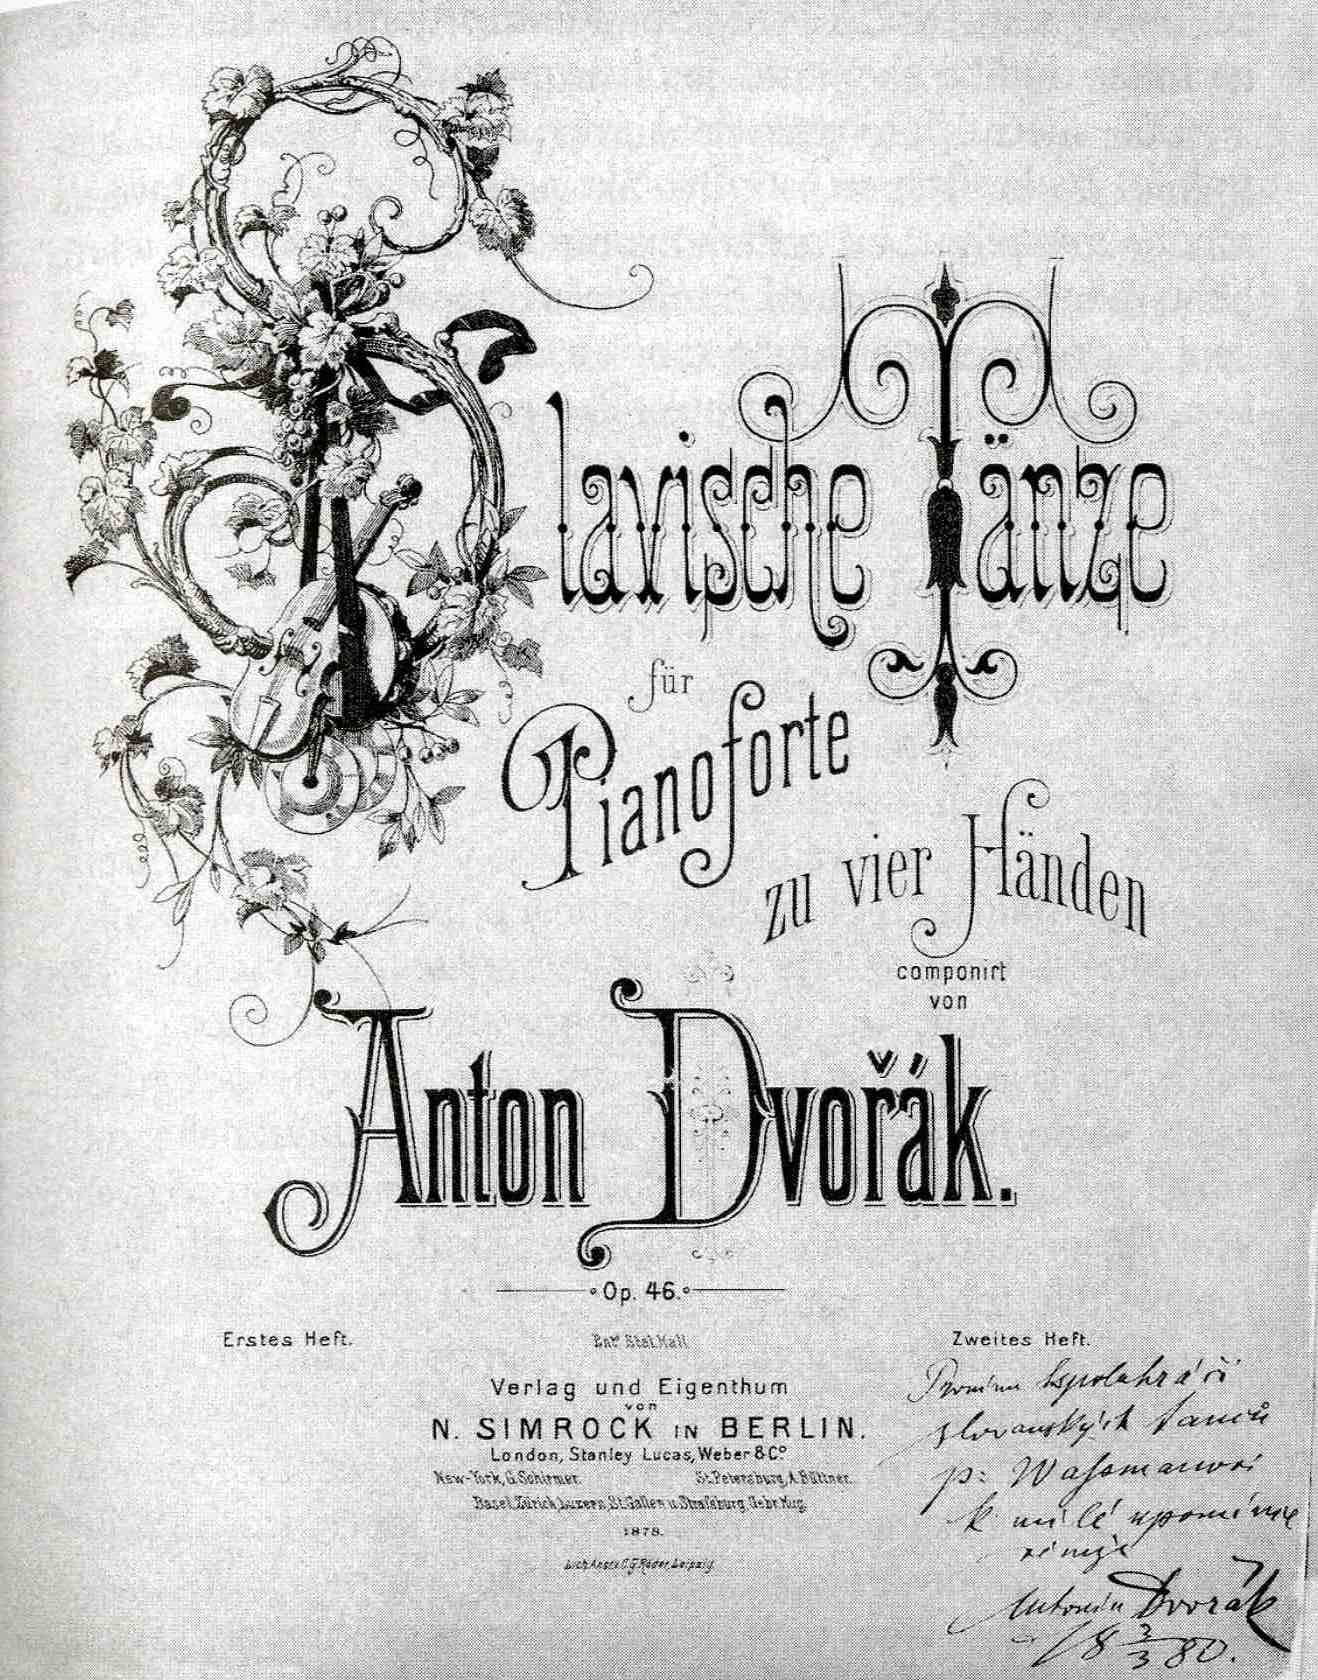 Slavische Tänze
für
Pianoforte
zu vier Händen
componirt
von
Anton Dvořák.
Op. 46.
Erstes Heft.
Entd Stat. Hall.
Zweites Heft.
Verlag und Eigenthum
von
N. SIMROCK IN BERLIN.
London, Stanley Lucas, Weber & Co.
New-York, G. Schirmer.
St. Petersburg, A. Büttner.
Basel, Zürich, Luzern, St. Gallen u. Straßburg, Gebr. Hug.
1878.
Lith. Anst. v. C. G. Röder, Leipzig.
Prvnímu spoluhráči
slovanských tanců
p:
k milé upomínce
Antonín Dvořák
18 2/3 80.